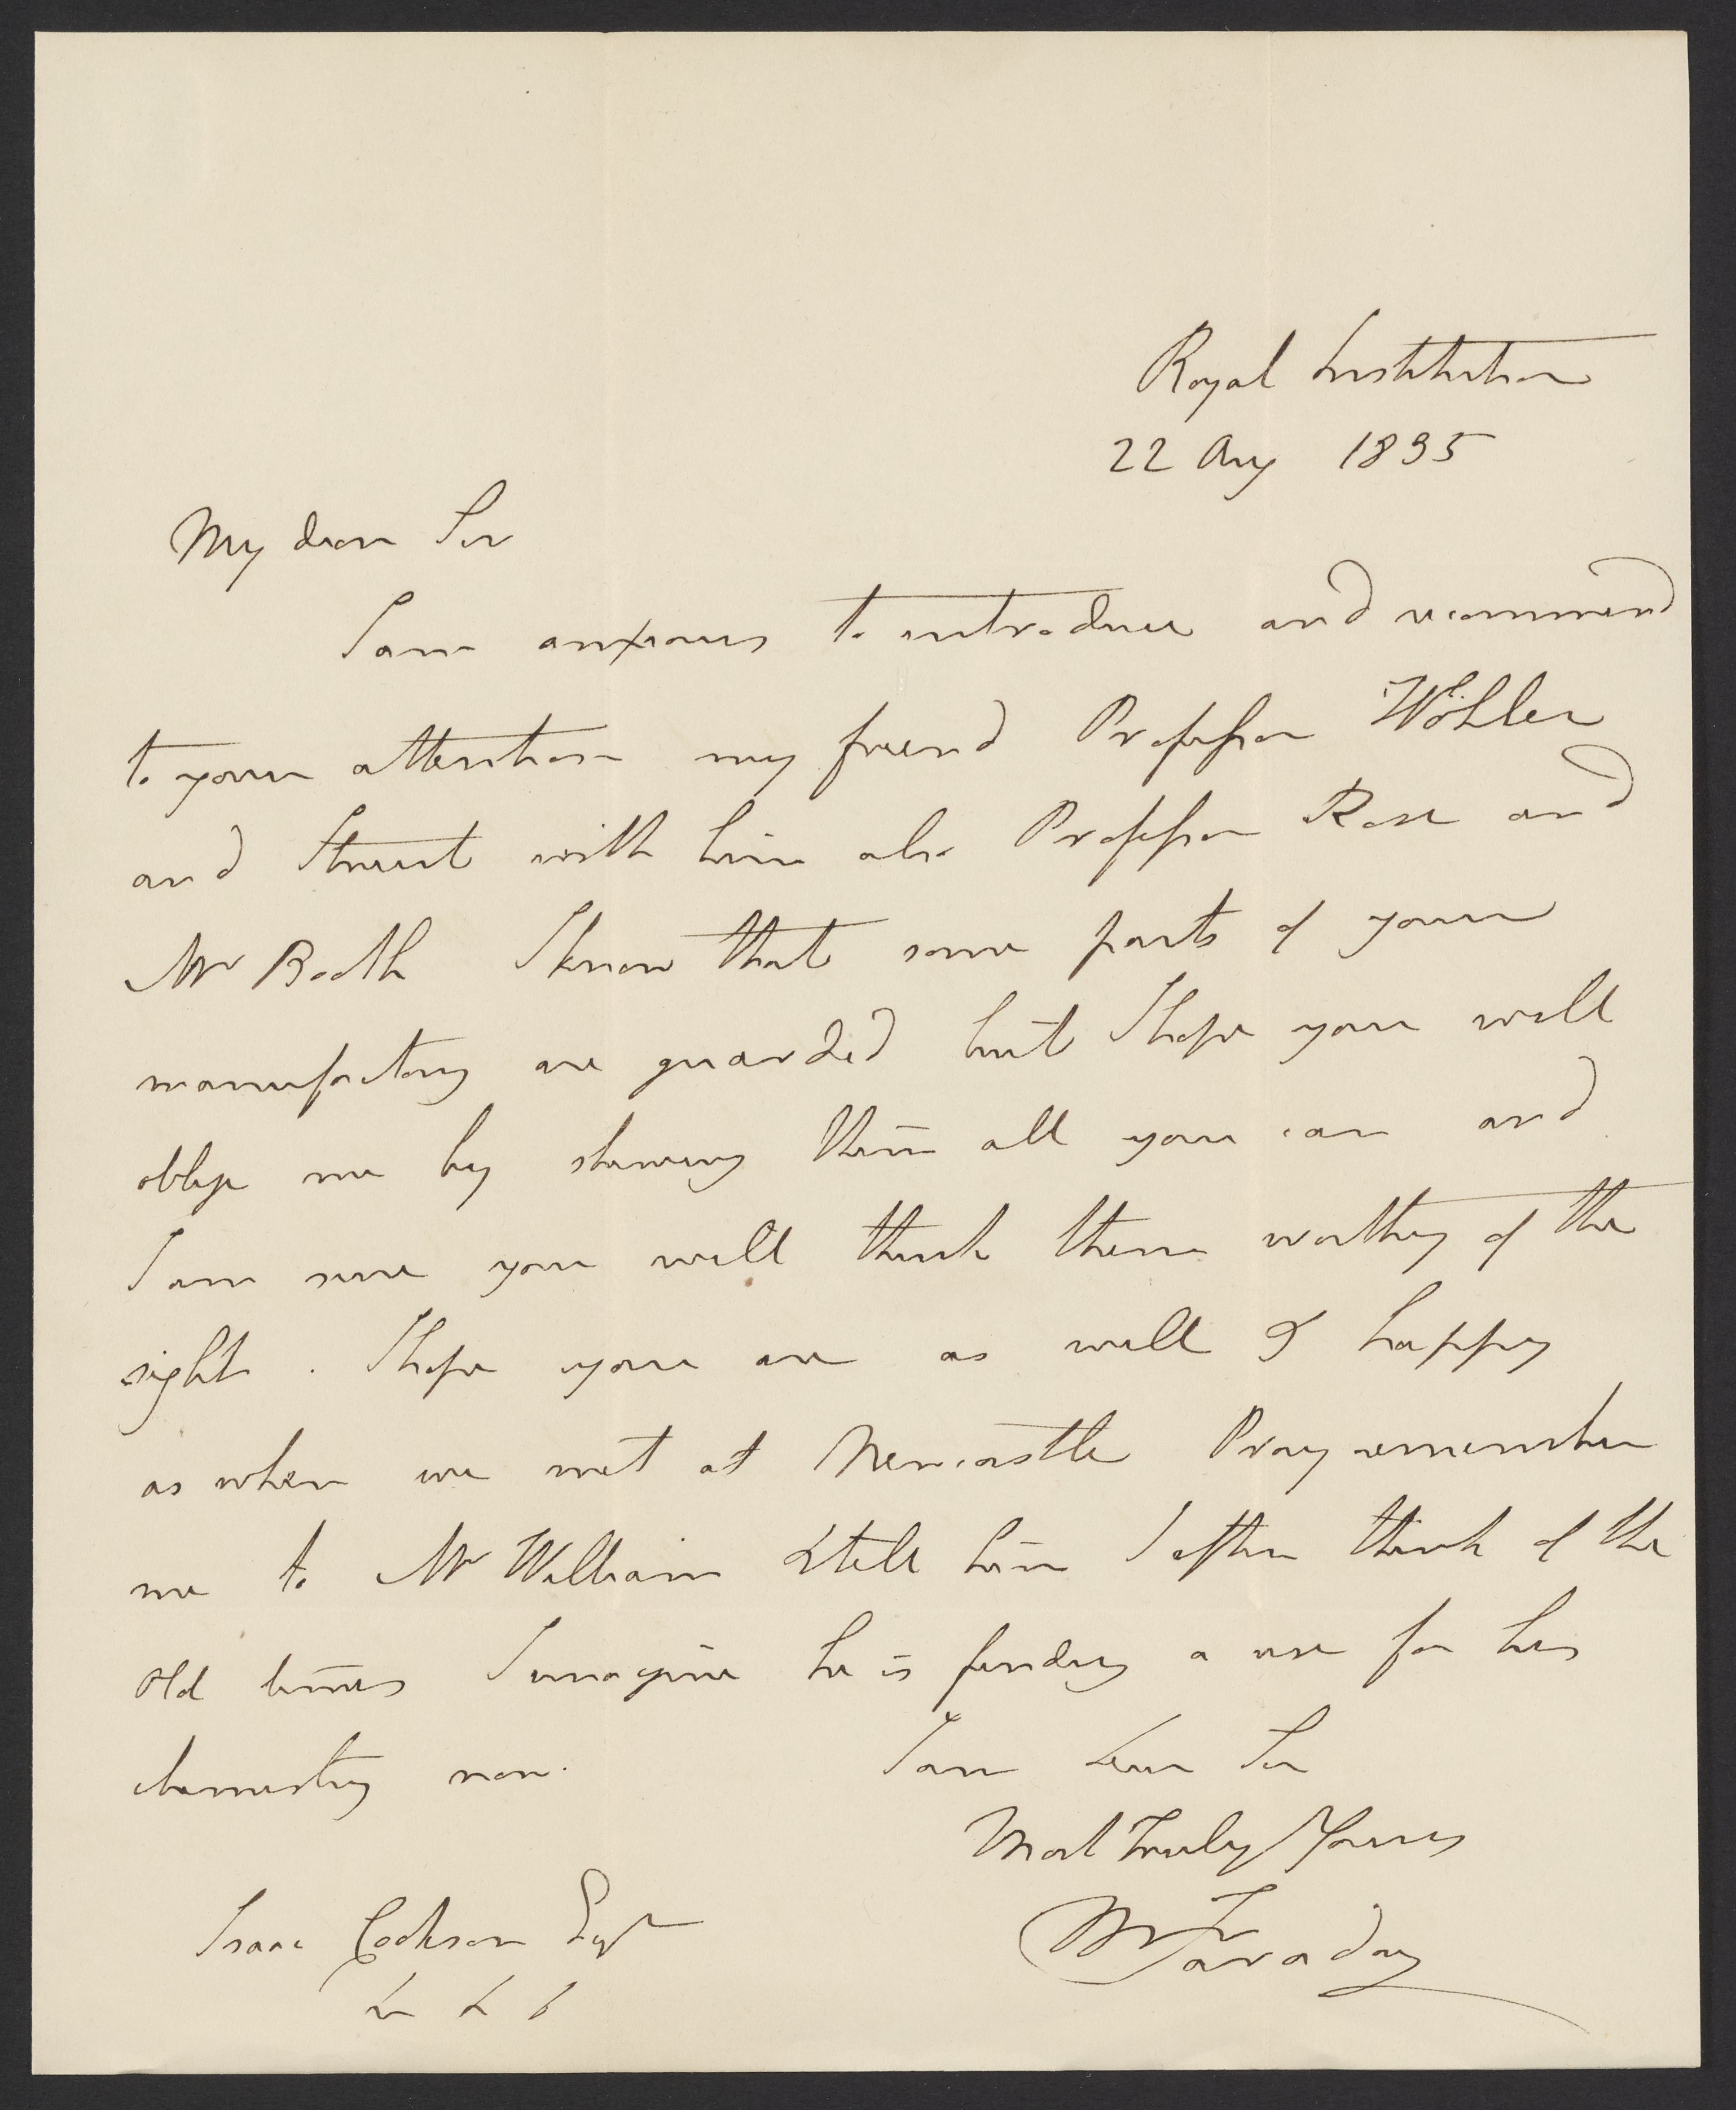 Royal Institution
22 Aug 1835
My dear Sir
I am anxious to introduce and recommend
to your attention my friend Professor Wöhler
and I trust with him also Professor Rose and
Mr Booth I know that some parts of your
manufactory are guarded but I hope you will
oblige me by shewing them all you can and
I am sure you will think them worthy of the
sight. I hope you are as well & happy
as when we met at Newcastle Pray remember
me to Mr William & tell him I often think of the
old times I imagine he is finding a use for his
chemistry now.
I am dear Sir
Most Truly Yours
M Faraday
Isaac Cookson Esqr
&c &c &c